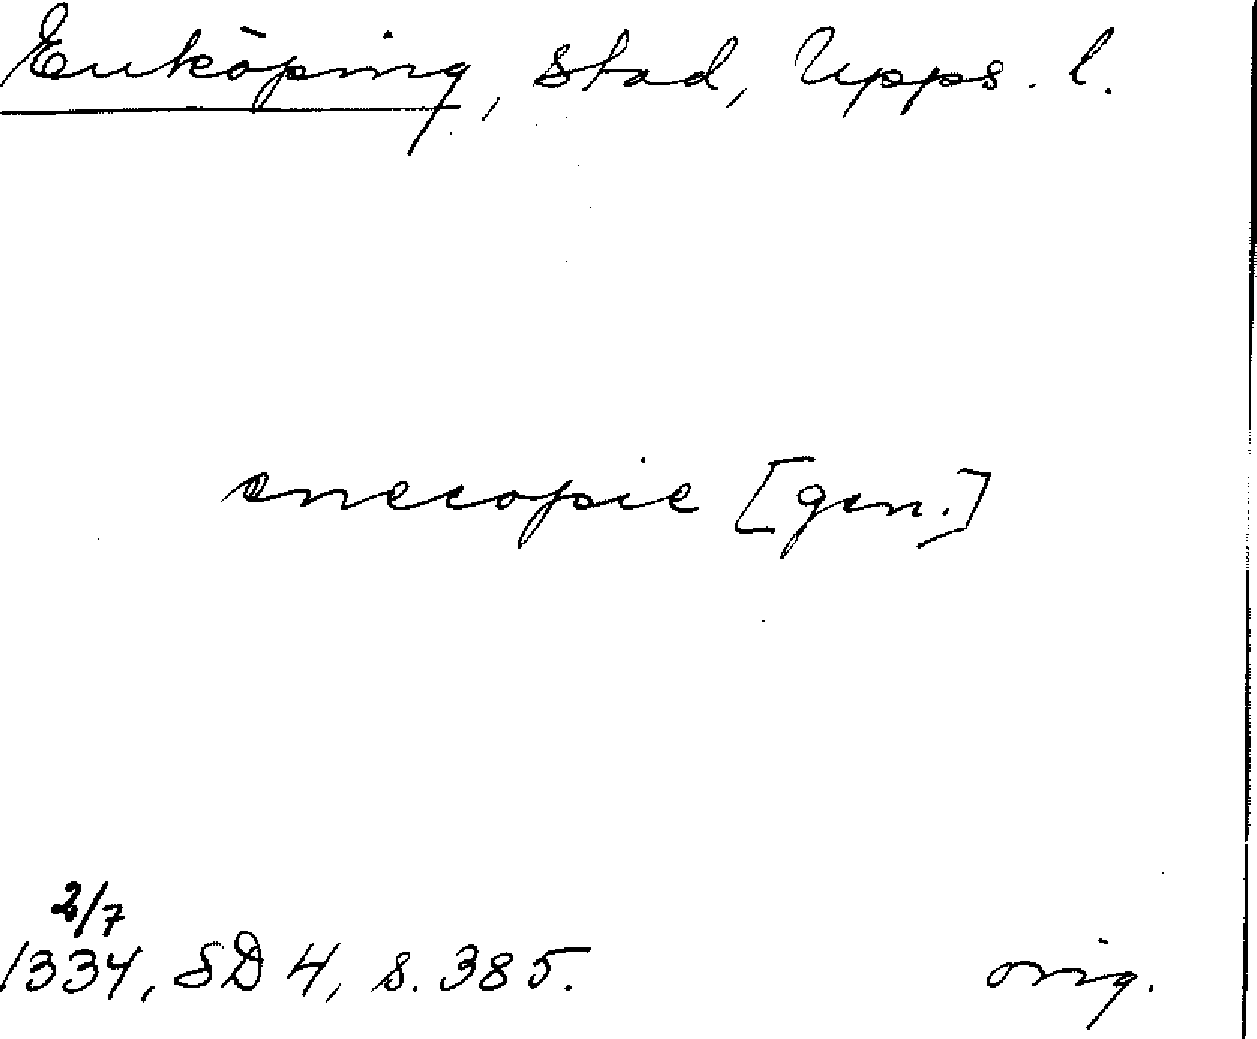 Enköping, stad, Upps. l.
enecopie [gen.]
2/7
1334, SD 4, s. 385.
orig.